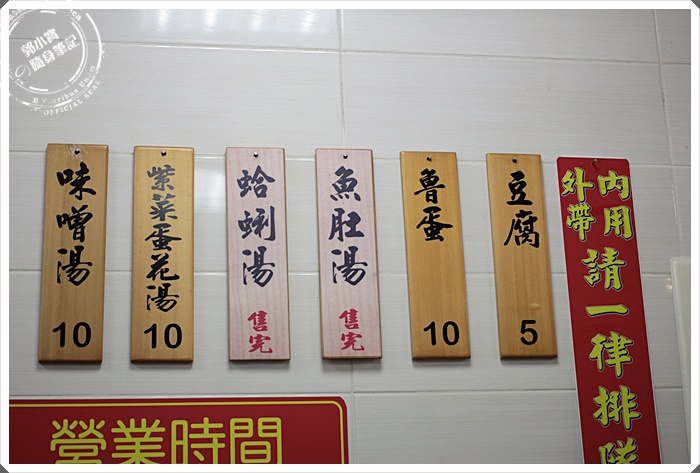 郭小寶
の隨身筆記
味噌湯
10
紫菜蛋花湯
10
蛤蜊湯
售完
魚肚湯
售完
魯蛋
10
豆腐
5
內用
外帶
請一律排隊
營業時間